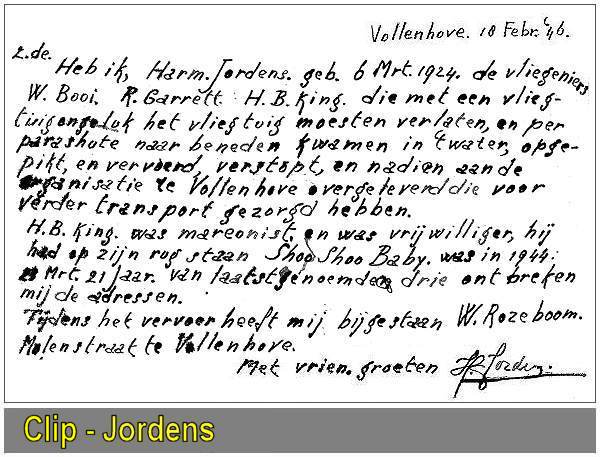 Vollenhove. 18 Febr. '46.
2.de.
Heb ik, Harm. Jordens. geb. 6 Mrt. 1924. de vliegeniers
W. Booi. R. Garrett. H.B. King. die met een vlieg-
tuigongeluk het vliegtuig moesten verlaten, en per
parashute naar beneden kwamen in 't water, opge-
pikt, en vervoerd, verstopt, en nadien aan de
organisatie te Vollenhove overgeleverd die voor
verder transport gezorgd hebben.
H.B. King. was mareonist, en was vrijwilliger, hij
had op zijn rug staan Shoo Shoo Baby. was in 1944:
Mrt. 21 jaar. van laatstgenoemden drie ontbreken
mij de adressen.
Tijdens het vervoer heeft mij bijgestaan W. Rozeboom.
Molenstraat te Vollenhove.
Met vrien. groeten H. Jordens.
Clip - Jordens